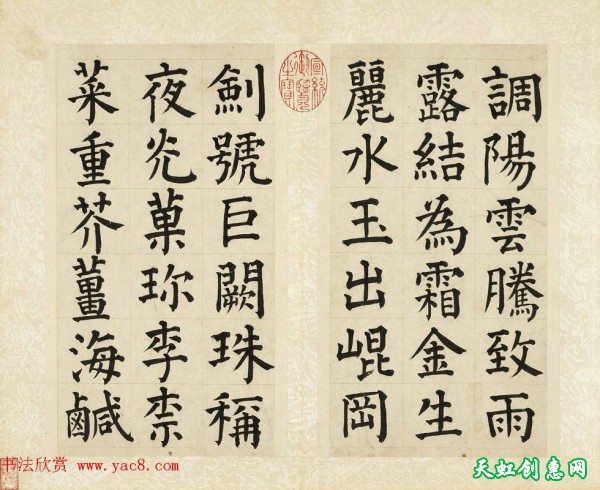 調陽雲騰致雨
露結為霜金生
麗水玉出崐岡
劍號巨闕珠稱
夜光菓珎李柰
菜重芥薑海鹹
宣統御覽之寶
书法欣赏 www.yac8.com
天虹创惠网